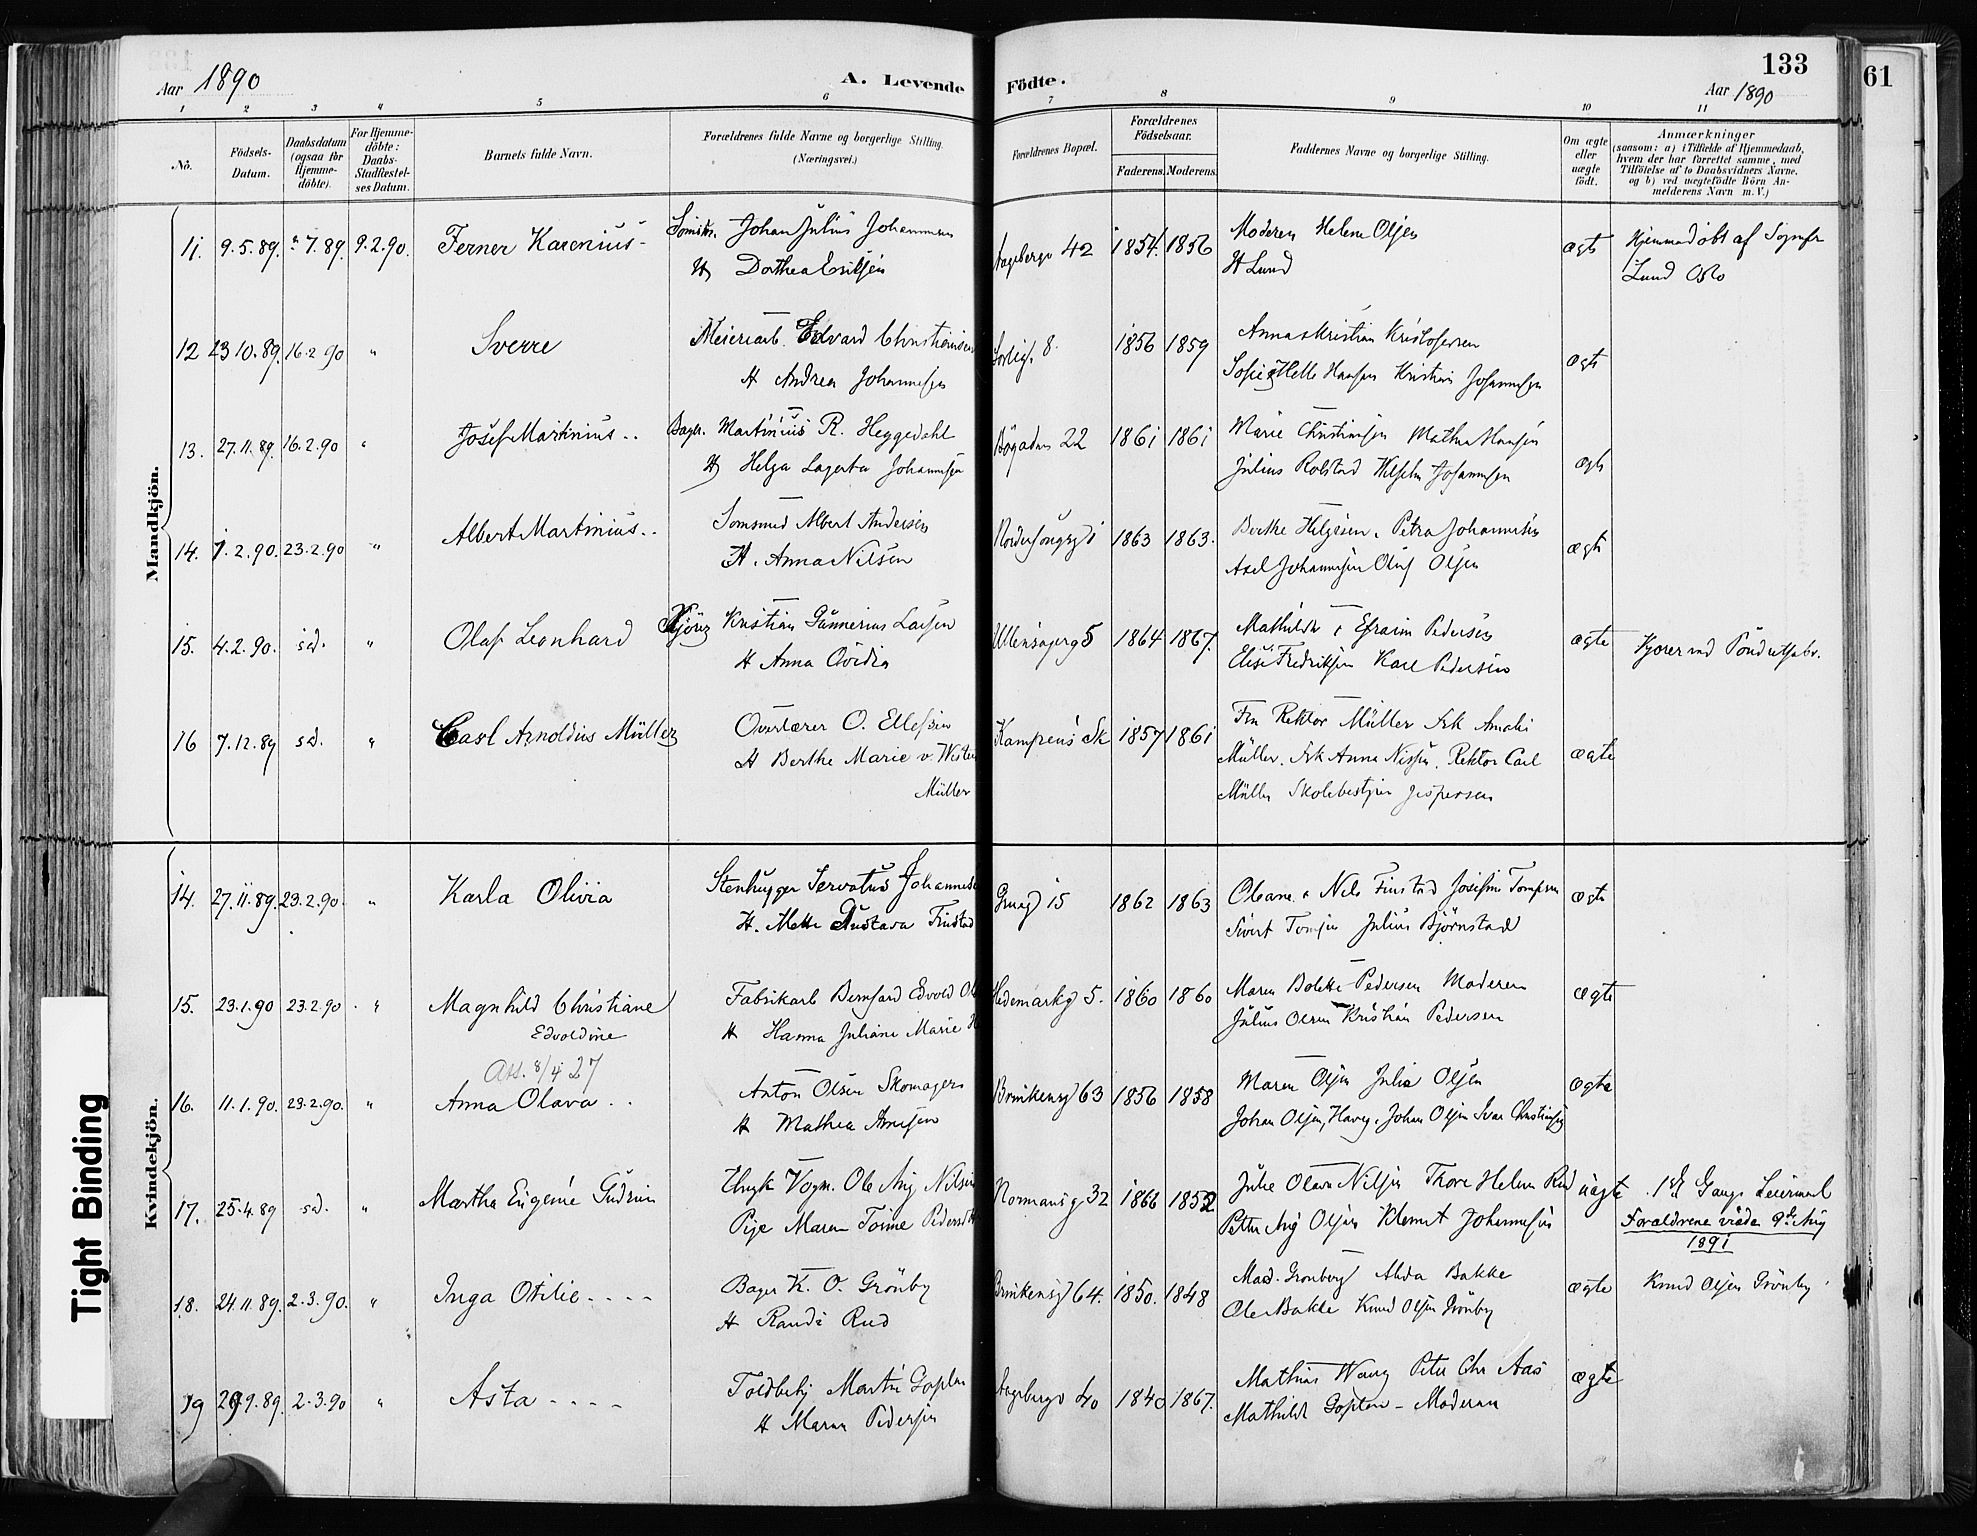 133
61
Aar 1890
A. Levende Födte.
Aar 1890
1 2 3 4 5 6 7 8 9 10 11
No.
Födsels-
Datum.
Daabsdatum
(ogsaa for
Hjemme-
döbte).
For Hjemme-
döbte:
Daabs-
Stadfæstel-
ses Datum.
Barnets fulde Navn.
Forældrenes fulde Navne og borgerlige Stilling.
(Næringsvei.)
Forældrenes Bopæl.
Forældrenes
Födselsaar.
Faderens. Moderens.
Faddernes Navne og borgerlige Stilling.
Om ægte
eller
uægte
födt.
Anmærkninger
(saasom: a) i Tilfælde af Hjemmedaab,
hvem der har forrettet samme, med
Tilföielse af to Daabsvidners Navne.
og b) ved uægtefödte Börn An-
melderens Navn m. V.)
Mandkjön.
11. 9.5.89. 7.89. 9.2.90. Ferner Karenius - Johan Julius Johannsen
H Dorthea Eriksen
Aagebergv 42 1854. 1856 Moderen Helene Olsen
H Lund
ægte Hjemmedöbt af Sognepr
Lund Oslo
12 23 10.89. 16.2 90 " Sverre Meieriarb. Edvard Christiansen
H Andrea Johannesen
8. 1856 1859 Anna Kristian Kristofersen
Sofie Helle Hansen Kristian Johannesen
ægte
13. 27.11.89. 16.2.90 " Josef Martinius .. Bager. Martinius R. Heggedahl
H Helga Lagerta Johannesen
Bögaden 22 1861 1861 Marie Christiansen Mathea Hansen
Julius Rolstad Wilhelm Johannesen
ægte
14. 1.2.90. 23.2.90 " Albert Martinius .. Albert Andersen
H. Anna Nilsen
1863 1863. Berthe Helgesen, Petra Johannesen
Axel Johannesen Oluf Olsen
ægte
15. 4.2.90. sd. " Olaf Leonhard Kjörer Kristian Gunnerius Larsen
H Anna Ovidia
Ullensagerg 5 1864 1867. Mathilde & Efraim Pedersen
Elise Fredriksen Karl Pedersen
ægte Kjörer ved
16 7.12.89 sd. " Carl Arnoldus Müller Overlærer O. Ellefsen
H Berthe Marie v. Westen
Müller
Kampens Sk 1857 1861 Fru Rektor Müller Frk Amalie
Müller. Frk Anna Nissen. Rektor Carl
Müller Skolebestyrer Jespersen
ægte
Kvindekjön.
14. 27.11.89. 23.2.90. " Karla Olivia Stenhugger Servatus Johannes
H. Mette Gustava Finstad
15 1862 1863 Oleane & Nils Finstad Josefine Tomsen
Sivert Tomsen Julius Björnstad
ægte
15. 23.1.90 23.2.90 " Magnhild Christiane
Edvoldine
Fabrikarb Bernhard Edvold
H Hanna Juliane Marie
Hedemarkg 5. 1860 1860 Maren Bolette Pedersen Moderen
Julius Olsen Kristian Pedersen
ægte
Att. 8/4 27
16. 11.1.90. 23.2.90. " Anna Olava .. Anton Olsen Skomager
H Mathea Arnesen
Brinkensg 63 1856 1858 Maren Olsen Julie Olsen
Johan Olsen, Johan Olsen Ivar Christiansen
ægte
17. 25.4.89 sd. " Martha Eugenie Gudrun Ole Aug Nilsen
Pige Maren Torine Pedersd
Normansg 32 1866 1852 Julie Olava Nilsen Thore Helene Rud
Petter Aug Olsen Klemet Johannesen
uægte 1ste Gangs Leiermaal
Forældrene viede 9de Aug
1891
18. 24.11.89. 2.3.90. " Inga Otilie - - - - Bager K. O. Grönby
H Randi Rud
Brinkensg 64. 1850. 1848 Mad. Gronberg Alida Bakke
Ole Bakke Knud Olsen Grönby
ægte Knud Olsen Grönby
19 29 9.89. 2.3.90 " Asta - - - - Toldbetj Martin Goplen
H Maren Pedersen
Aagebergv 40 1840 1867. Mathias Wang Peter Chr Aas
Mathilde Goplen - Moderen
ægte
Tight Binding